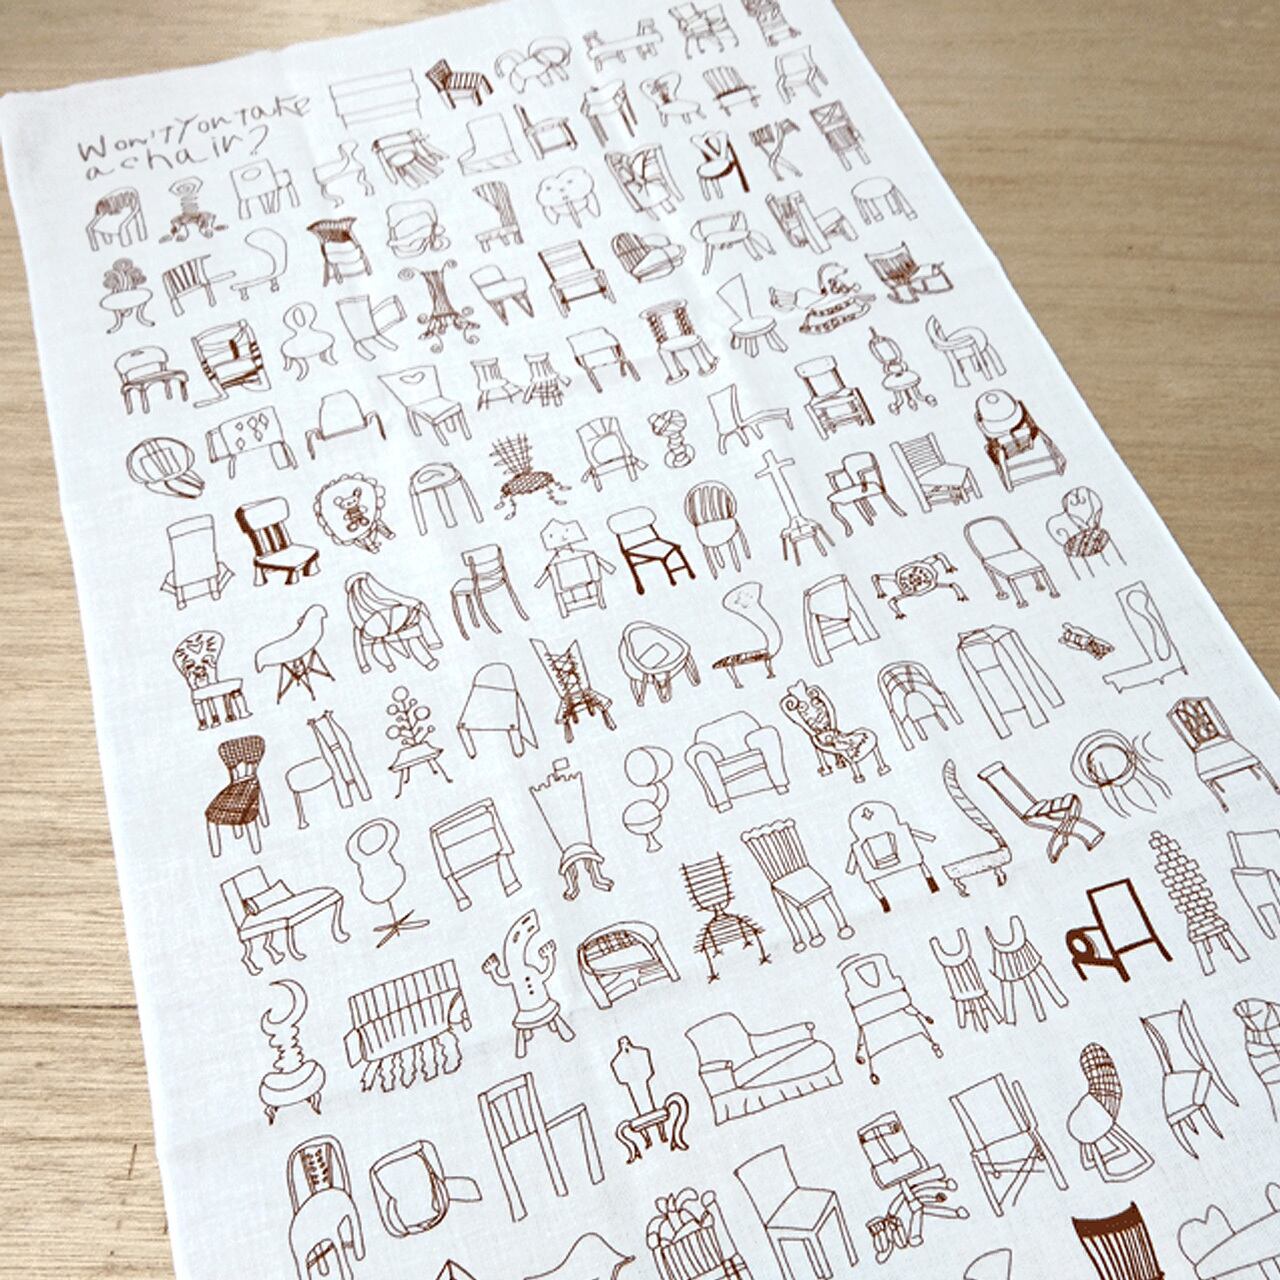 Won'tYontake
achain?